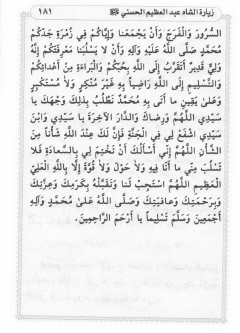 زيارة الشاه عبد العظيم الحسني ١٨١
السُّرُورَ وَالْفَرَجَ وَأَنْ يَجْمَعَنا وَإِيَّاكُمْ فِي زُمْرَةِ جَدِّكُمْ
مُحَمَّدٍ صَلَّى اللهُ عَلَيْهِ وَآلِهِ وَأَنْ لا يَسْلُبَنا مَعْرِفَتَكُمْ إِنَّهُ
وَلِيٌّ قَدِيرٌ أَتَقَرَّبُ إِلَى اللهِ بِحُبِّكُمْ وَالْبَراءَةِ مِنْ أَعْدائِكُمْ
وَالتَّسْلِيمِ إِلَى اللهِ راضِياً بِهِ غَيْرَ مُنْكِرٍ وَلا مُسْتَكْبِرٍ
وَعَلىٰ يَقِينِ ما أَتى بِهِ مُحَمَّدٌ نَطْلُبُ بِذلِكَ وَجْهَكَ يا
سَيِّدِي اللّهُمَّ وَرِضاكَ وَالدَّارَ الآخِرَةَ يا سَيِّدِي وَابْنَ
سَيِّدِي اشْفَعْ لِي فِي الْجَنَّةِ فَإِنَّ لَكَ عِنْدَ اللهِ شَأْناً مِنَ
الشَّأْنِ اللّهُمَّ إِنِّي أَسْأَلُكَ أَنْ تَخْتِمَ لِي بِالسَّعادَةِ فَلا
تَسْلُبَ مِنِّي ما أَنَا فِيهِ وَلا حَوْلَ وَلا قُوَّةَ إِلَّا بِاللهِ الْعَلِيِّ
الْعَظِيمِ اللّهُمَّ اسْتَجِبْ لَنا وَتَقَبَّلْهُ بِكَرَمِكَ وَعِزَّتِكَ
وَبِرَحْمَتِكَ وَعافِيَتِكَ وَصَلَّى اللهُ عَلىٰ مُحَمَّدٍ وَآلِهِ
أَجْمَعِينَ وَسَلَّمَ تَسْلِيماً يا أَرْحَمَ الرَّاحِمِينَ.